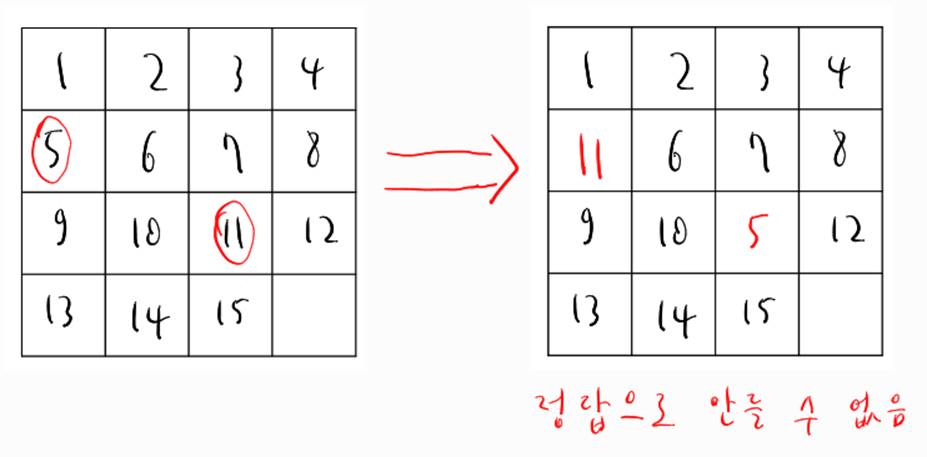 1 2 3 4
5 6 7 8
9 10 11 12
13 14 15
1 2 3 4
11 6 7 8
9 10 5 12
13 14 15
정답으로 만들 수 없음